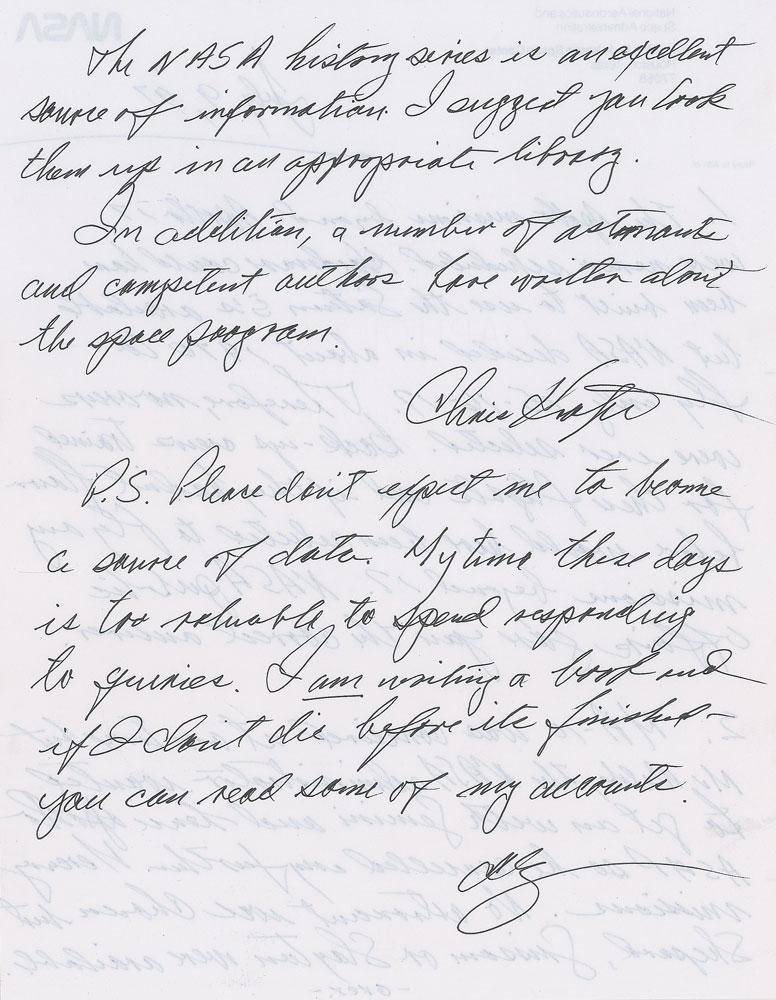 The NASA history series is an excellent
source of information. I suggest you look
them up in an appropriate library.
In addition, a number of astronauts
and competent authors have written about
the space program.
Chris Kraft
P.S. Please don't expect me to become
a source of data. My time these days
is too valuable to spend responding
to queries. I am writing a book and
if I don't die before its finished –
you can read some of my accounts.